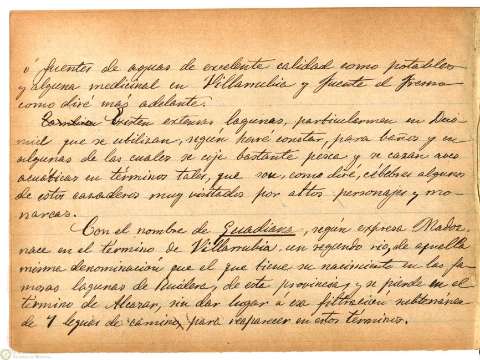 ó fuentes de aguas de excelente calidad como potables
y alguna medicinal en Villarrubia y fuente el Fresno
como diré más adelante.
Existen extensas lagunas, particularmen en Dai-
miel que se utilizan, según haré constar, para baños y en
algunas de las cuales se coje bastante pesca y se cazan aves
acuáticas en términos tales, que son, como diré, célebres algunos
de estos cazaderos muy visitados por altos personajes y mo-
narcas.
Con el nombre de Guadiana, según expresa Madoz,
nace en el término de Villarrubia un segundo río, de aquella
misma denominación que el que tiene su nacimiento en las fa-
mosas lagunas de Ruidera, de esta provincia, y se pierde en el
término de Alcázar, sin dar lugar a esa filtración subterránea
de 7 leguas de camino, para reaparecer en estos términos.